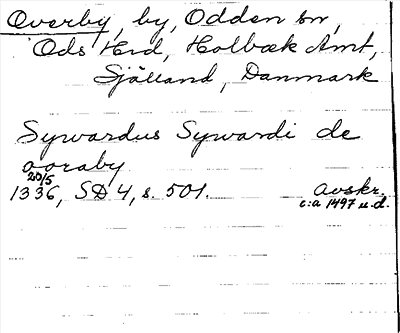 Overby, by, Odden sn,
Ods Hrd, Holbæk Amt,
Sjælland, Danmark
Sywardus Sywardi de
ooraby
20/5
1336, SD 4, s. 501. Avskr.
c:a 1497 u.d.